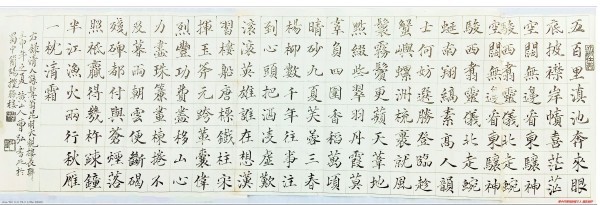 五百里滇池奔來眼
底披襟岸幘喜茫茫
空闊無邊看東驤神
駿西翥靈儀北走蜿
空闊無邊看東驤神
駿西翥靈儀北走蜿
蜒南翔縞素高人韻
士何妨選勝登臨趁
蟹嶼螺洲梳裹就風
鬟霧鬢更蘋天葦地
點綴些翠羽丹霞莫
辜負四圍香稻萬頃
晴沙九夏芙蓉三春
楊柳數千年往事注
到心頭把酒凌虛歎
滾滾英雄誰在想漢
習樓船唐標鐵柱宋
揮玉斧元跨革囊偉
烈豐功費盡移山心
力盡珠簾畫棟卷不
及暮雨朝雲便斷碣
殘碑都付與蒼煙落
照祇贏得幾杵疎鐘
半江漁火兩行秋雁
一枕清霜
右錄清人孫髯翁昆明大觀樓長聯